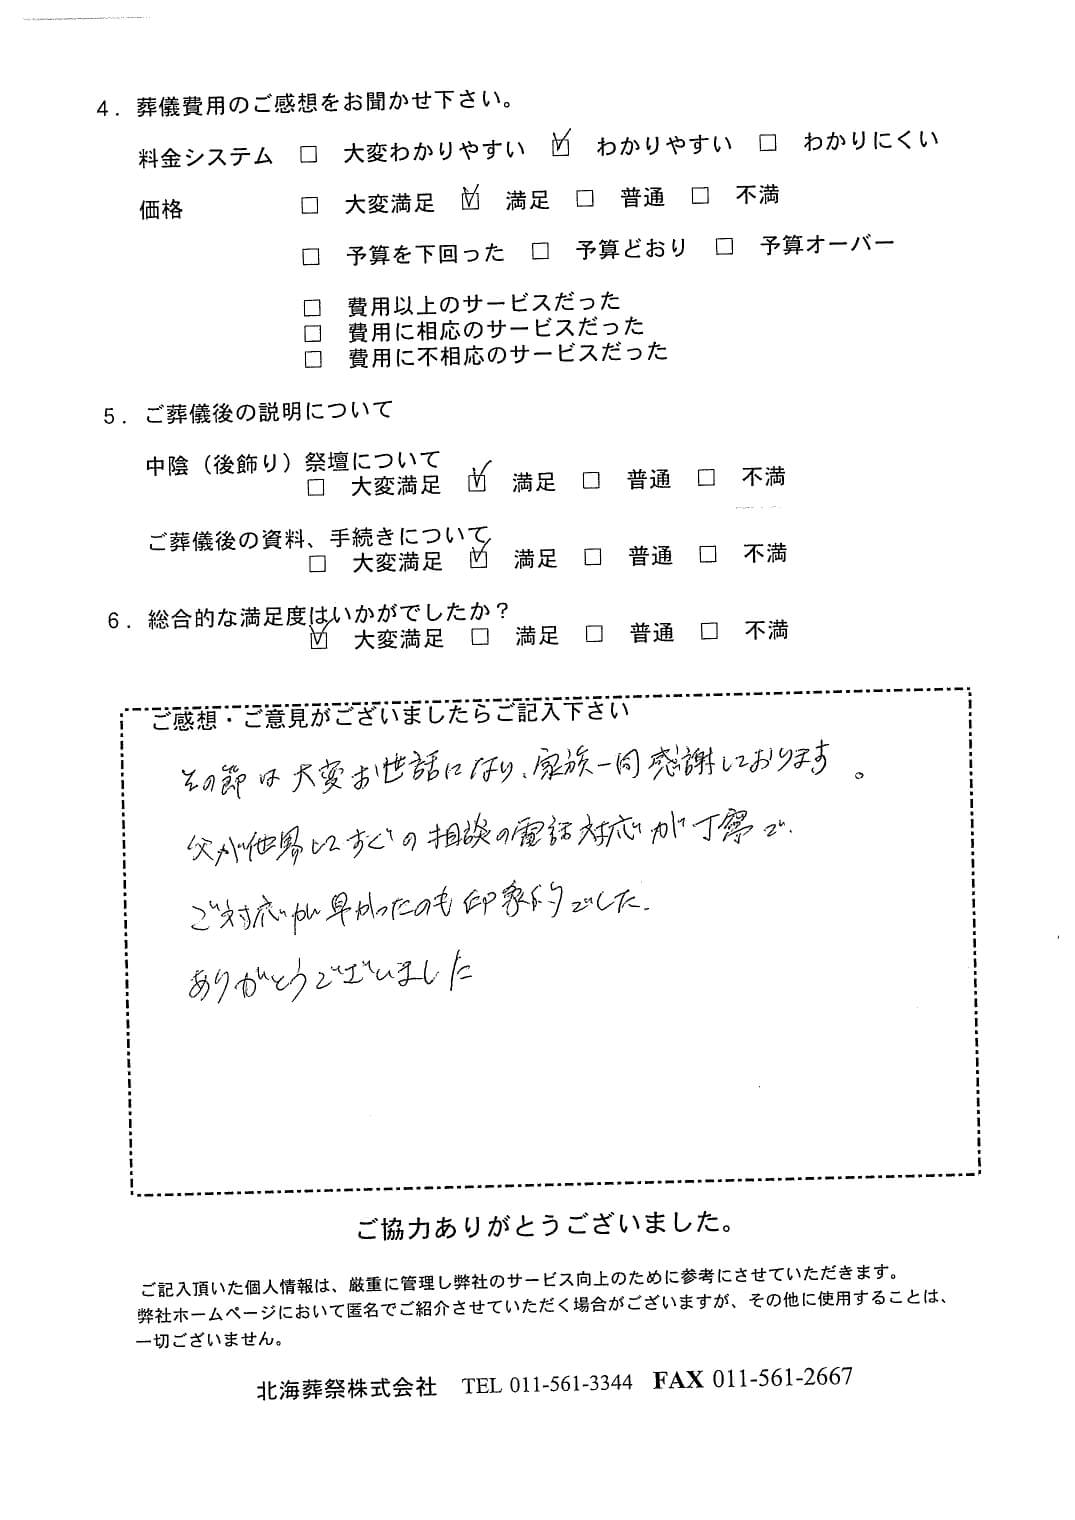 4．葬儀費用のご感想をお聞かせ下さい。
料金システム □ 大変わかりやすい ☑ わかりやすい □ わかりにくい
価格 □ 大変満足 ☑ 満足 □ 普通 □ 不満
□ 予算を下回った □ 予算どおり □ 予算オーバー
□ 費用以上のサービスだった
□ 費用に相応のサービスだった
□ 費用に不相応のサービスだった
5．ご葬儀後の説明について
中陰（後飾り）祭壇について
□ 大変満足 ☑ 満足 □ 普通 □ 不満
ご葬儀後の資料、手続きについて
□ 大変満足 ☑ 満足 □ 普通 □ 不満
6．総合的な満足度はいかがでしたか？
☑ 大変満足 □ 満足 □ 普通 □ 不満
ご感想・ご意見がございましたらご記入下さい
その節は大変お世話になり、家族一同感謝しております。
父が他界してすぐの相談の電話対応が丁寧で、
ご対応が早かったのも印象的でした。
ありがとうございました
ご協力ありがとうございました。
ご記入頂いた個人情報は、厳重に管理し弊社のサービス向上のために参考にさせていただきます。
弊社ホームページにおいて匿名でご紹介させていただく場合がございますが、その他に使用することは、
一切ございません。
北海葬祭株式会社 TEL 011-561-3344 FAX 011-561-2667